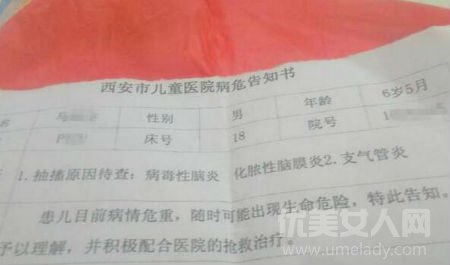 西安市儿童医院病危告知书
名 性别 男 年龄 6岁5月
床号 18 院号
1.抽搐原因待查：病毒性脑炎 化脓性脑膜炎2.支气管炎
患儿目前病情危重，随时可能出现生命危险，特此告知。
予以理解，并积极配合医院的抢救治疗。
优美女人网
www.umelady.com